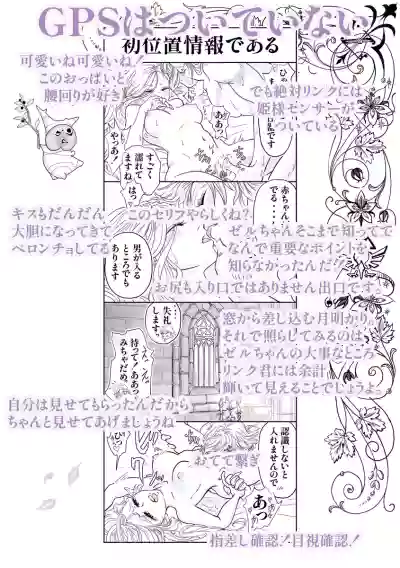 GPSはついていない
初位置情報である
可愛いね可愛いね!
このおっぱいと
腰回りが好き
でも絶対リンクには
姫様センサーが
ついている
ああっ
やっあ!
すごく
濡れて
ますね
はっ
赤ちゃん
でる・・・
キスもだんだん
大胆になってきて
ベロンチョしてる
このセリフやらしくね?
ゼルちゃんそこまで知ってて
なんで重要なポイントを
知らなかったんだ?
お尻も入り口ではありません出口です
男が入る
ところでも
あります
失礼
します。
窓から差し込む月明かり
それで照らしてみるのは
ゼルちゃんの大事なところ
リンク君には余計
輝いて見えることでしょうよ
待って!ああっ
みちゃだめ
自分は見せてもらったんだから
ちゃんと見せてあげましょうね
認識しないと
入れませんので
おてて繋ぎ
あっ
指差し確認!目視確認!